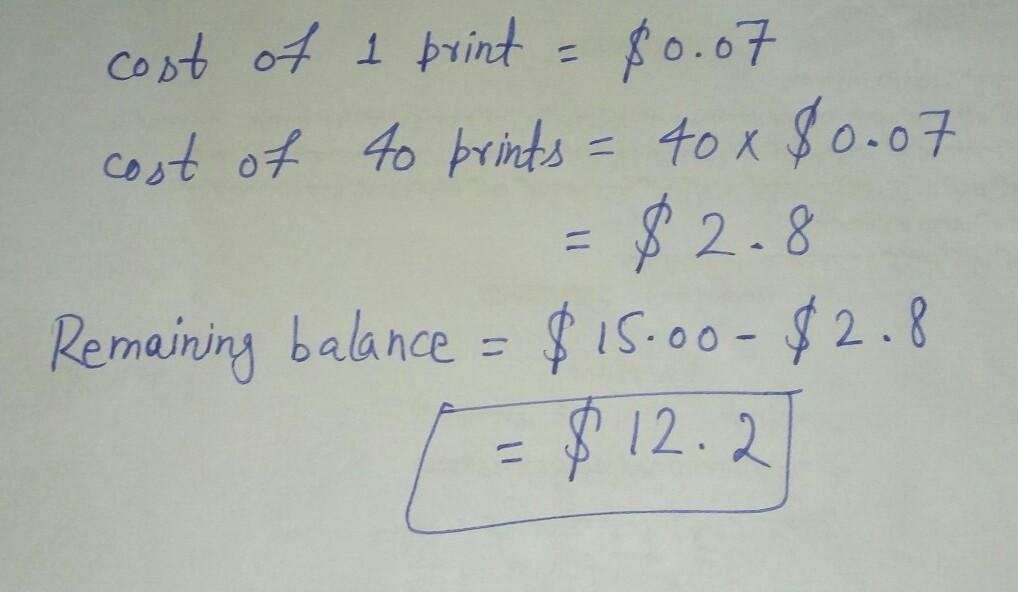 cost of 1 print = $0.07
cost of 40 prints = 40 x $0.07
= $2.8
Remaining balance = $15.00 - $2.8
= $12.2